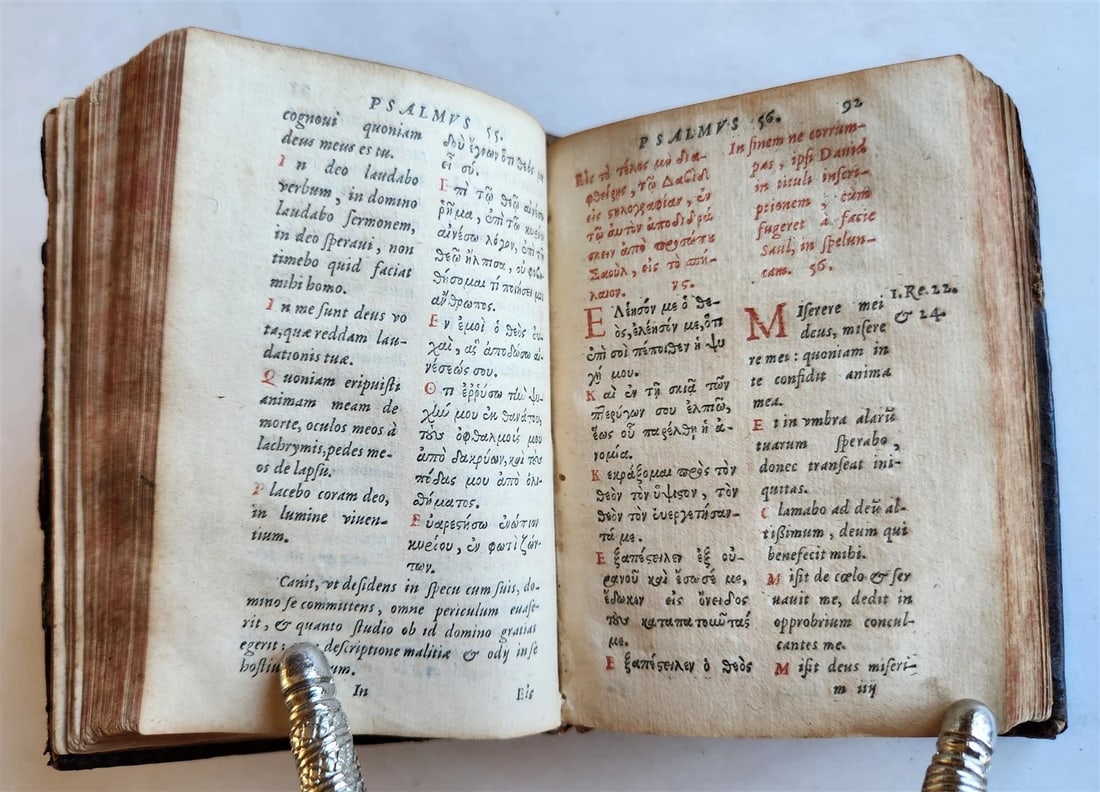 PSALMVS 55.
cognoui quoniam
deus meus es tu.
In deo laudabo
verbum, in domino
laudabo sermonem,
in deo speraui, non
timebo quid faciat
mihi homo.
In me sunt deus vo
ta, quæ reddam lau-
dationis tuæ.
Quoniam eripuisti
animam meam de
morte, oculos meos à
lachrymis, pedes me-
os de lapsu.
Placebo coram deo,
in lumine viuen-
tium.
ἰδοὺ ἔγνων ὅτι θεός
εἶ σύ.
Ἐπὶ τῷ θεῷ αἰνέσω
ῥῆμα, ἐπὶ τῷ κυρίῳ
αἰνέσω λόγον, ἐπὶ τῷ
θεῷ ἤλπισα, οὐ φοβη
θήσομαι τί ποιήσει μοι
ἄνθρωπος.
Ἐν ἐμοὶ ὁ θεὸς εὐ-
χαὶ, ἃς ἀποδώσω αἰ-
νέσεώς σου.
Ὅτι ἐρρύσω τὴν ψυ-
χήν μου ἐκ θανάτου,
τοὺς ὀφθαλμούς μου
ἀπὸ δακρύων, καὶ τοὺς
πόδας μου ἀπὸ ὀλι-
σθήματος.
Εὐαρεστήσω ἐνώπιον
κυρίου, ἐν φωτὶ ζών-
των.
Canit, vt desidens in specu cum suis, do-
mino se committens, omne periculum euase-
rit, & quanto studio ob id domino gratias
egerit: descriptione malitiæ & odij in se
In
Eis
PSALMVS 56.
92
Εἰς τὸ τέλος μὴ δια-
φθείρης, τῷ Δαβὶδ
εἰς στηλογραφίαν, ἐν
τῷ αὐτὸν ἀποδιδρά
σκειν ἀπὸ προσώπου
Σαοὺλ, εἰς τὸ σπή-
λαιον. νς.
Ἐλέησόν με ὁ θε-
ὸς, ἐλέησόν με, ὅτι
ἐπὶ σοὶ πέποιθεν ἡ ψυ
χή μου.
Καὶ ἐν τῇ σκιᾷ τῶν
πτερύγων σου ἐλπιῶ,
ἕως οὗ παρέλθῃ ἡ ἀ-
νομία.
Κεκράξομαι πρὸς τὸν
θεὸν τὸν ὕψιστον, τὸν
θεὸν τὸν εὐεργετήσαν-
τά με.
Ἐξαπέστειλεν ἐξ οὐ-
ρανοῦ καὶ ἔσωσέ με,
ἔδωκεν εἰς ὄνειδος
τοὺς καταπατοῦντάς
με.
Ἐξαπέστειλεν ὁ θεὸς
In finem ne corrum-
pas, ipsi Dauid
in tituli inscri-
ptionem, cùm
fugeret à facie
Saul, in spelun-
cam. 56.
Miserere mei
deus, misere
re mei: quoniam in
te confidit anima
mea.
Et in vmbra alarũ
tuarum sperabo,
donec transeat ini-
quitas.
Clamabo ad deũ al-
tissimum, deum qui
benefecit mihi.
Misit de cœlo & ser
uauit me, dedit in
opprobrium concul-
cantes me.
Misit deus miseri-
1. Re. 22.
& 24.
m iiij